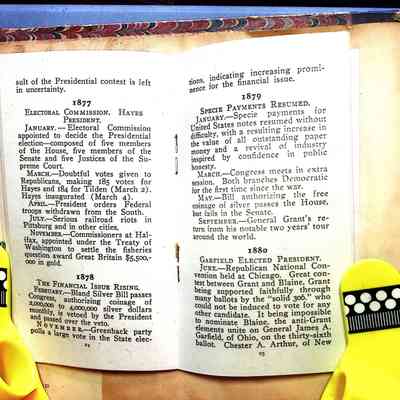 sult of the Presidential contest is left
in uncertainty.
1877
ELECTORAL COMMISSION. HAYES
PRESIDENT.
JANUARY.—Electoral Commission
appointed to decide the Presidential
election—composed of five members
of the House, five members of the
Senate and five Justices of the Su-
preme Court.
MARCH.—Doubtful votes given to
Republicans, making 185 votes for
Hayes and 184 for Tilden (March 2).
Hayes inaugurated (March 4).
APRIL.—President orders Federal
troops withdrawn from the South.
JULY.—Serious railroad riots in
Pittsburg and in other cities.
NOVEMBER.—Commissioners at Hal-
ifax, appointed under the Treaty of
Washington to settle the fisheries
question award Great Britain $5,500,-
000 in gold.
1878
THE FINANCIAL ISSUE RISING.
FEBRUARY.—Bland Silver Bill passes
Congress, authorizing coinage of
2,000,000 to 4,000,000 silver dollars
monthly, is vetoed by the President
and passed over the veto.
NOVEMBER.—Greenback party
polls a large vote in the State elec-
tions, indicating increasing promi-
nence for the financial issue.
1879
SPECIE PAYMENTS RESUMED.
JANUARY.—Specie payments for
United States notes resumed without
difficulty, with a resulting increase in
the value of all outstanding paper
money and a revival of industry
inspired by confidence in public
honesty.
MARCH.—Congress meets in extra
session. Both branches Democratic
for the first time since the war.
MAY.—Bill authorizing the free
coinage of silver passes the House,
but fails in the Senate.
SEPTEMBER.—General Grant's re-
turn from his notable two years' tour
around the world.
1880
GARFIELD ELECTED PRESIDENT.
JUNE.—Republican National Con-
vention held at Chicago. Great con-
test between Grant and Blaine, Grant
being supported faithfully through
many ballots by the "solid 306," who
could not be induced to vote for any
other candidate. It being impossible
to nominate Blaine, the anti-Grant
elements unite on General James A.
Garfield, of Ohio, on the thirty-sixth
ballot. Chester A. Arthur, of New